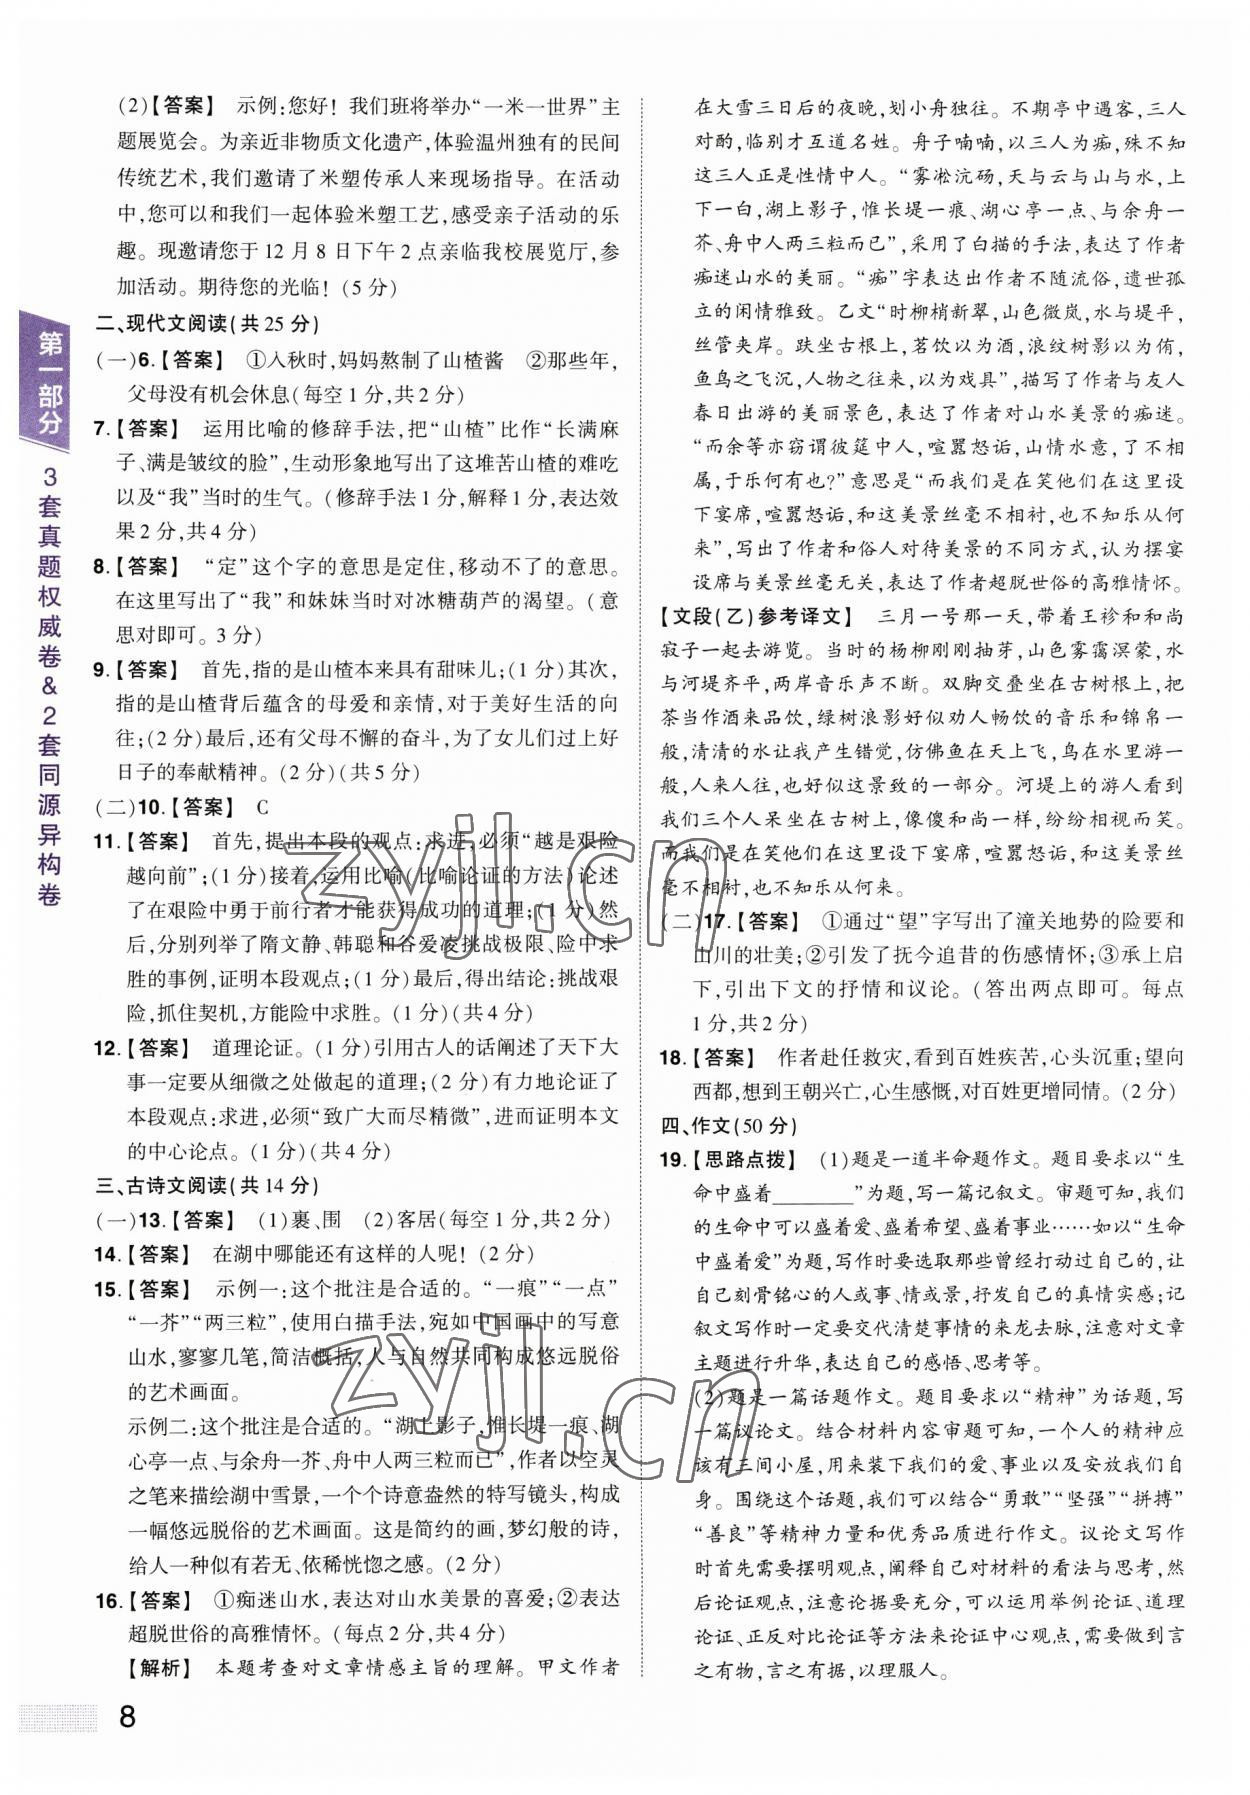 (2)【答案】 示例:您好！我们班将举办“一米一世界”主
题展览会。为亲近非物质文化遗产,体验温州独有的民间
传统艺术,我们邀请了米塑传承人来现场指导。在活动
中,您可以和我们一起体验米塑工艺,感受亲子活动的乐
趣。现邀请您于12月8日下午2点亲临我校展览厅,参
加活动。期待您的光临！(5分)
二、现代文阅读(共25分)
(一)6.【答案】 ①入秋时,妈妈熬制了山楂酱 ②那些年,
父母没有机会休息(每空1分,共2分)
7.【答案】 运用比喻的修辞手法,把“山楂”比作“长满麻
子、满是皱纹的脸”,生动形象地写出了这堆苦山楂的难吃
以及“我”当时的生气。(修辞手法1分,解释1分,表达效
果2分,共4分)
8.【答案】 “定”这个字的意思是定住,移动不了的意思。
在这里写出了“我”和妹妹当时对冰糖葫芦的渴望。(意
思对即可。3分)
9.【答案】 首先,指的是山楂本来具有甜味儿;(1分)其次,
指的是山楂背后蕴含的母爱和亲情,对于美好生活的向
往;(2分)最后,还有父母不懈的奋斗,为了女儿们过上好
日子的奉献精神。(2分)(共5分)
(二)10.【答案】 C
11.【答案】 首先,提出本段的观点:求进,必须“越是艰险
越向前”;(1分)接着,运用比喻(比喻论证的方法)论述
了在艰险中勇于前行者才能获得成功的道理;(1分)然
后,分别列举了隋文静、韩聪和谷爱凌挑战极限、险中求
胜的事例,证明本段观点;(1分)最后,得出结论:挑战艰
险,抓住契机,方能险中求胜。(1分)(共4分)
12.【答案】 道理论证。(1分)引用古人的话阐述了天下大
事一定要从细微之处做起的道理;(2分)有力地论证了
本段观点:求进,必须“致广大而尽精微”,进而证明本文
的中心论点。(1分)(共4分)
三、古诗文阅读(共14分)
(一)13.【答案】 (1)裹、围 (2)客居(每空1分,共2分)
14.【答案】 在湖中哪能还有这样的人呢！(2分)
15.【答案】 示例一:这个批注是合适的。“一痕”“一点”
“一芥”“两三粒”,使用白描手法,宛如中国画中的写意
山水,寥寥几笔,简洁概括,人与自然共同构成悠远脱俗
的艺术画面。
示例二:这个批注是合适的。“湖上影子,惟长堤一痕、湖
心亭一点、与余舟一芥、舟中人两三粒而已”,作者以空灵
之笔来描绘湖中雪景,一个个诗意盎然的特写镜头,构成
一幅悠远脱俗的艺术画面。这是简约的画,梦幻般的诗,
给人一种似有若无、依稀恍惚之感。(2分)
16.【答案】 ①痴迷山水,表达对山水美景的喜爱;②表达
超脱世俗的高雅情怀。(每点2分,共4分)
【解析】 本题考查对文章情感主旨的理解。甲文作者
在大雪三日后的夜晚,划小舟独往。不期亭中遇客,三人
对酌,临别才互道名姓。舟子喃喃,以三人为痴,殊不知
这三人正是性情中人。“雾凇沆砀,天与云与山与水,上
下一白,湖上影子,惟长堤一痕、湖心亭一点、与余舟一
芥、舟中人两三粒而已”,采用了白描的手法,表达了作者
痴迷山水的美丽。“痴”字表达出作者不随流俗,遗世孤
立的闲情雅致。乙文“时柳梢新翠,山色微岚,水与堤平,
丝管夹岸。趺坐古根上,茗饮以为酒,浪纹树影以为侑,
鱼鸟之飞沉,人物之往来,以为戏具”,描写了作者与友人
春日出游的美丽景色,表达了作者对山水美景的痴迷。
“而余等亦窃谓彼筵中人,喧嚣怒诟,山情水意,了不相
属,于乐何有也?”意思是“而我们是在笑他们在这里设
下宴席,喧嚣怒诟,和这美景丝毫不相衬,也不知乐从何
来”,写出了作者和俗人对待美景的不同方式,认为摆宴
设席与美景丝毫无关,表达了作者超脱世俗的高雅情怀。
【文段(乙)参考译文】 三月一号那一天,带着王袗和和尚
寂子一起去游览。当时的杨柳刚刚抽芽,山色雾霭溟蒙,水
与河堤齐平,两岸音乐声不断。双脚交叠坐在古树根上,把
茶当作酒来品饮,绿树浪影好似劝人畅饮的音乐和锦帛一
般,清清的水让我产生错觉,仿佛鱼在天上飞,鸟在水里游一
般,人来人往,也好似这景致的一部分。河堤上的游人看到
我们三个人呆坐在古树上,傻傻和尚一样,纷纷相视而笑。
而我们是在笑他们在这里设下宴席,喧嚣怒诟,和这美景丝
毫不相衬,也不知乐从何来。
(二)17.【答案】 ①通过“望”字写出了潼关地势的险要和
山川的壮美;②引发了抚今追昔的伤感情怀;③承上启
下,引出下文的抒情和议论。(答出两点即可。每点
1分,共2分)
18.【答案】 作者赴任救灾,看到百姓疾苦,心头沉重;望向
西都,想到王朝兴亡,心生感慨,对百姓更增同情。(2分)
四、作文(50分)
19.【思路点拨】 (1)题是一道半命题作文。题目要求以“生
命中盛着________”为题,写一篇记叙文。审题可知,我们
的生命中可以盛着爱、盛着希望、盛着事业……如以“生命
中盛着爱”为题,写作时要选取那些曾经打动过自己的,让
自己刻骨铭心的人或事、情或景,抒发自己的真情实感;记
叙文写作时一定要交代清楚事情的来龙去脉,注意对文章
主题进行升华,表达自己的感悟、思考等。
(2)题是一篇话题作文。题目要求以“精神”为话题,写
一篇议论文。结合材料内容审题可知,一个人的精神应
该有三间小屋,用来装下我们的爱、事业以及安放我们自
身。围绕这个话题,我们可以结合“勇敢”“坚强”“拼搏”
“善良”等精神力量和优秀品质进行作文。议论文写作
时首先需要摆明观点,阐释自己对材料的看法与思考,然
后论证观点,注意论据要充分,可以运用举例论证、道理
论证、正反对比论证等方法来论证中心观点,需要做到言
之有物,言之有据,以理服人。
第一部分
3套真题权威卷&2套同源异构卷
8
zyjl.cn
zyjl.cn